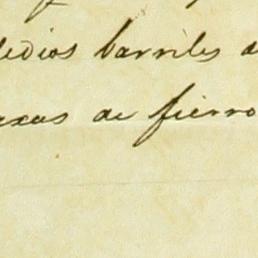 medios barriles d
axas de fierro